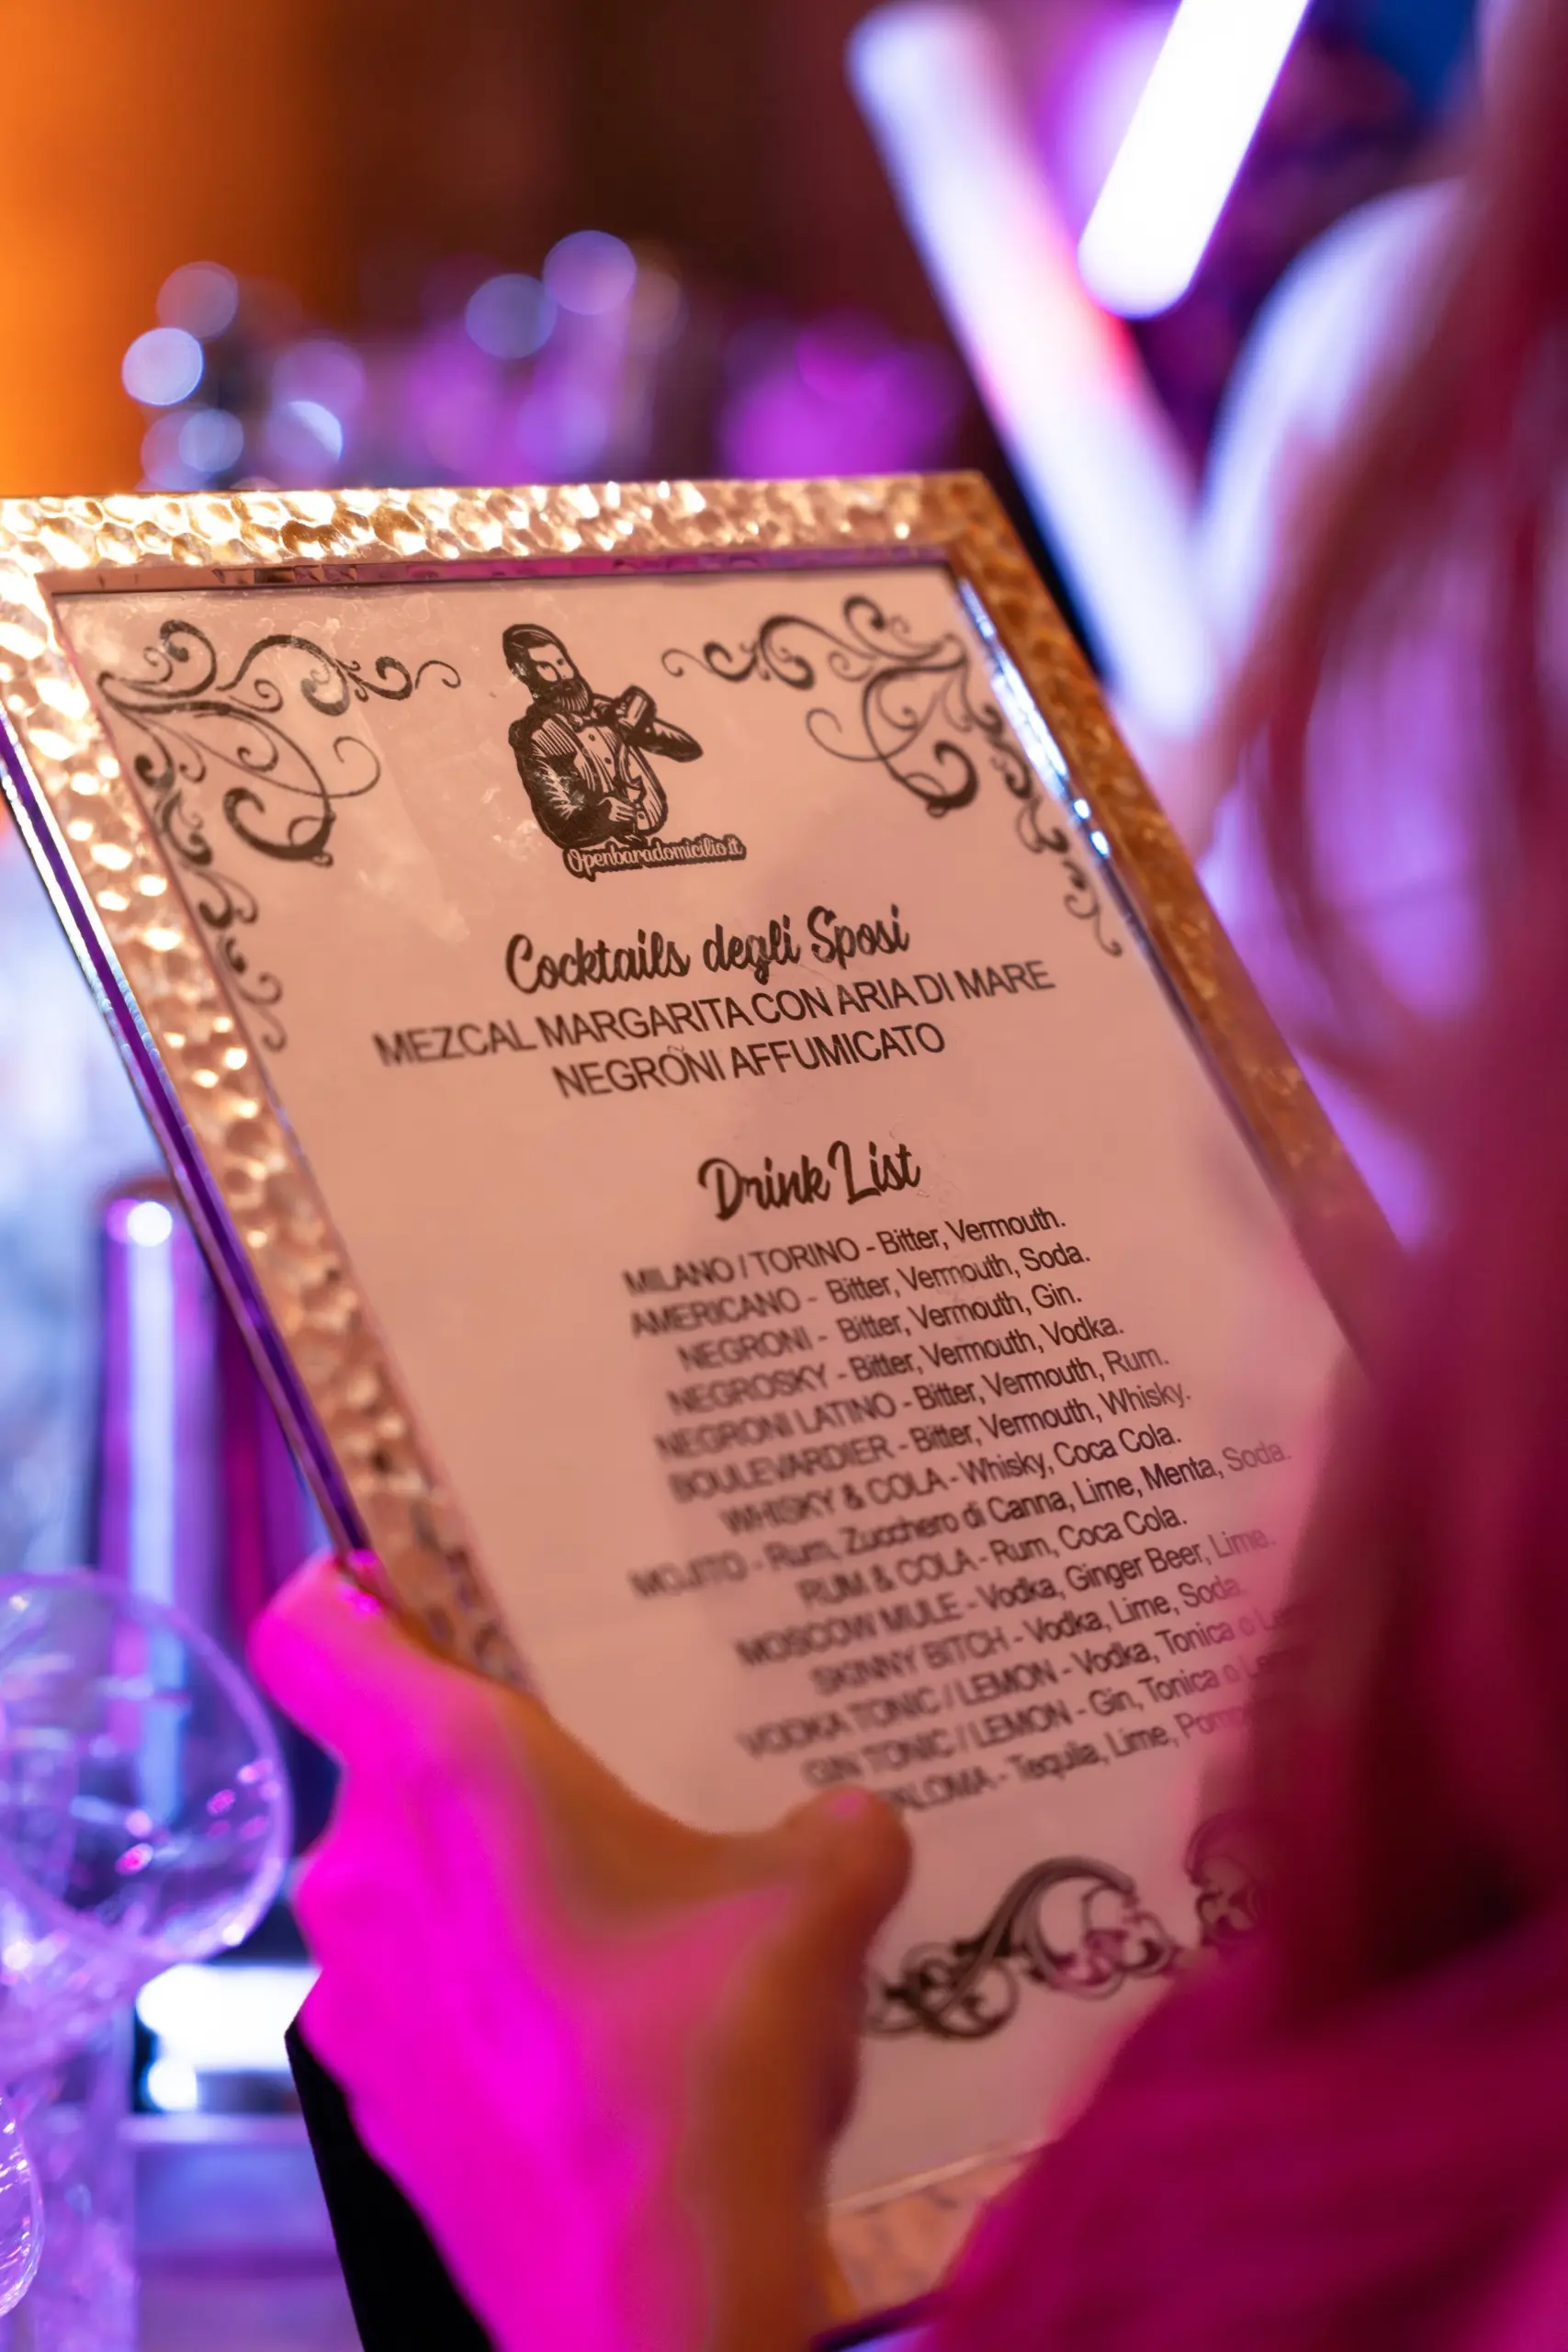 Openbaradomicilio.it
Cocktails degli Sposi
MEZCAL MARGARITA CON ARIA DI MARE
NEGRONI AFFUMICATO
Drink List
MILANO / TORINO - Bitter, Vermouth.
AMERICANO - Bitter, Vermouth, Soda.
NEGRONI - Bitter, Vermouth, Gin.
NEGROSKY - Bitter, Vermouth, Vodka.
NEGRONI LATINO - Bitter, Vermouth, Rum.
BOULEVARDIER - Bitter, Vermouth, Whisky.
WHISKY & COLA - Whisky, Coca Cola.
MOJITO - Rum, Zucchero di Canna, Lime, Menta, Soda.
RUM & COLA - Rum, Coca Cola.
MOSCOW MULE - Vodka, Ginger Beer, Lime.
SKINNY BITCH - Vodka, Lime, Soda.
VODKA TONIC / LEMON - Vodka, Tonica o
GIN TONIC / LEMON - Gin, Tonica o
- Tequila, Lime,